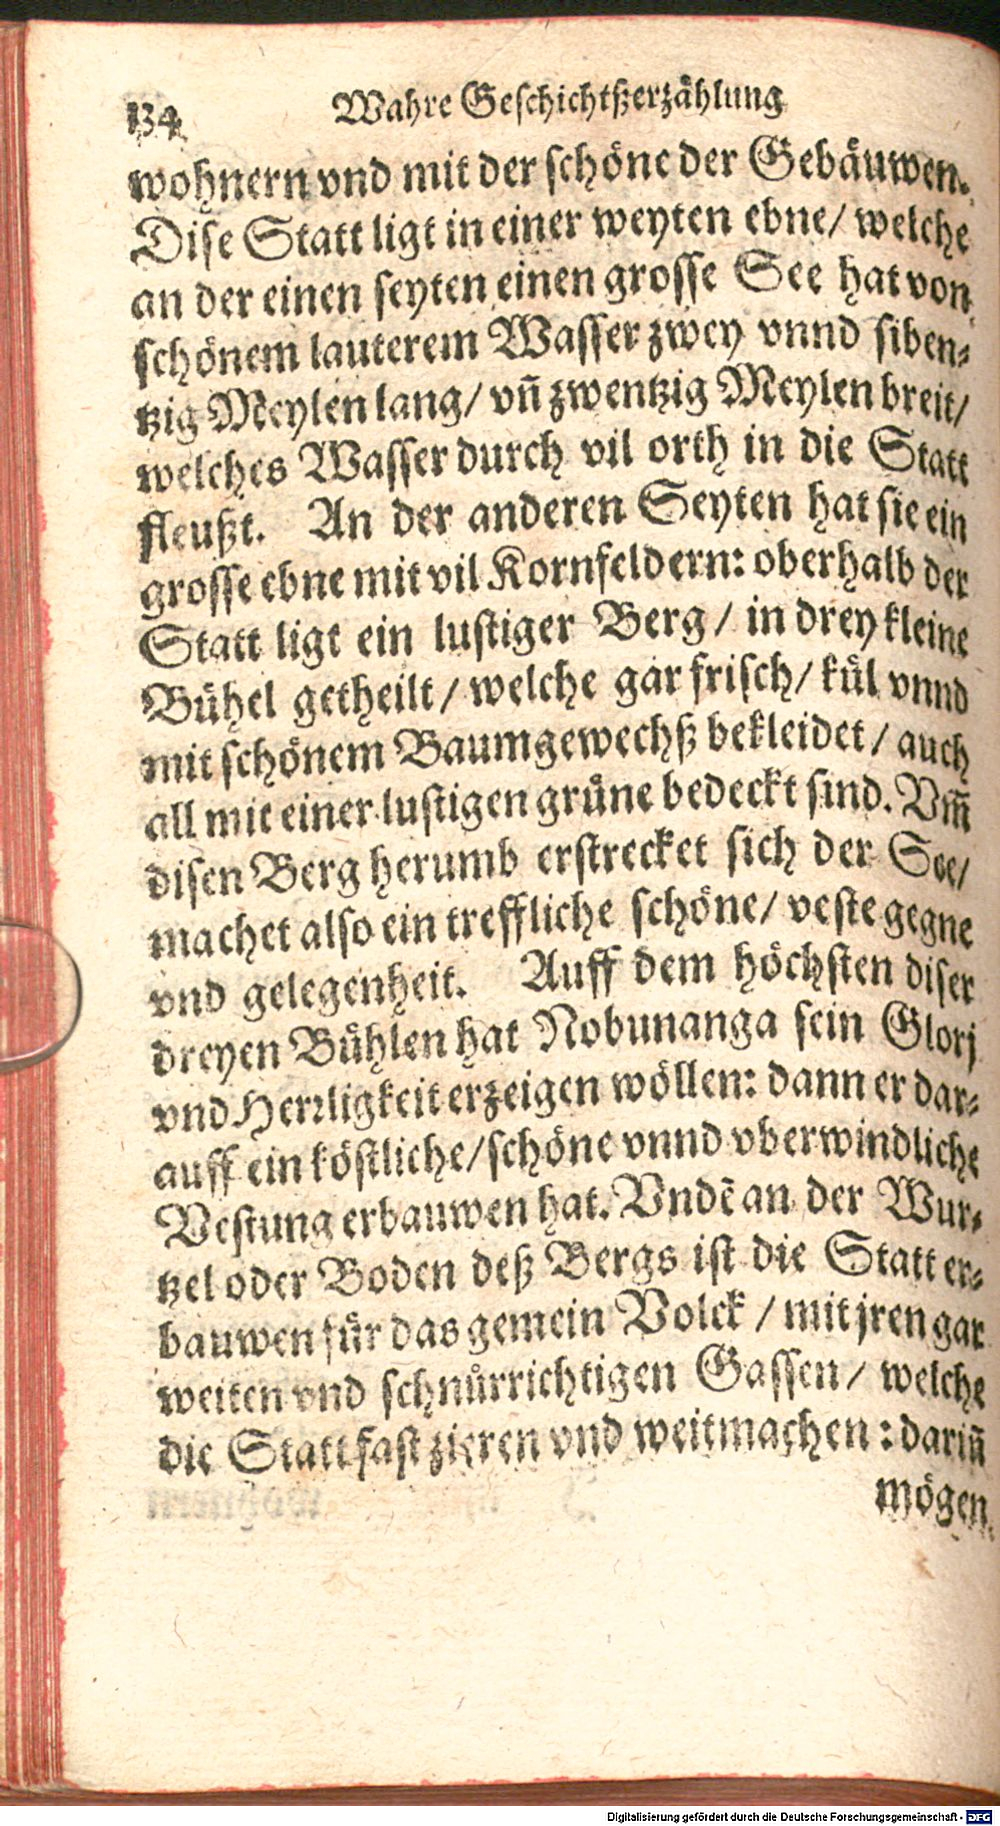 134 Wahre Geschichtßerzählung
wohnern vnd mit der schöne der Gebäuwen.
Dise Statt ligt in einer weyten ebne/ welche
an der einen seyten einen grosse See hat von
schönem lauterem Wasser zwey vnnd siben-
tzig Meylen lang/ vñ zwentzig Meylen breit/
welches Wasser durch vil orth in die Statt
fleußt. An der anderen Seyten hat sie ein
grosse ebne mit vil Kornfeldern: oberhalb der
Statt ligt ein lustiger Berg/ in drey kleine
Bühel getheilt/ welche gar frisch/ kül vnnd
mit schönem Baumgewechß bekleidet/ auch
all mit einer lustigen grüne bedeckt sind. Vm̃
disen Berg herumb erstrecket sich der See/
machet also ein treffliche schöne/ veste gegne
vnd gelegenheit. Auff dem höchsten diser
dreyen Bühlen hat Nobunanga sein Glorj
vnd Herrligkeit erzeigen wöllen: dann er dar-
auff ein köstliche/ schöne vnnd vberwindliche
Vestung erbauwen hat. Vndẽ an der Wur-
tzel oder Boden deß Bergs ist die Statt er-
bauwen für das gemein Volck/ mit jren gar
weiten vnd schnürrichtigen Gassen/ welche
die Statt fast zieren vnd weitmachen: dariñ
mögen
Digitalisierung gefördert durch die Deutsche Forschungsgemeinschaft - DFG